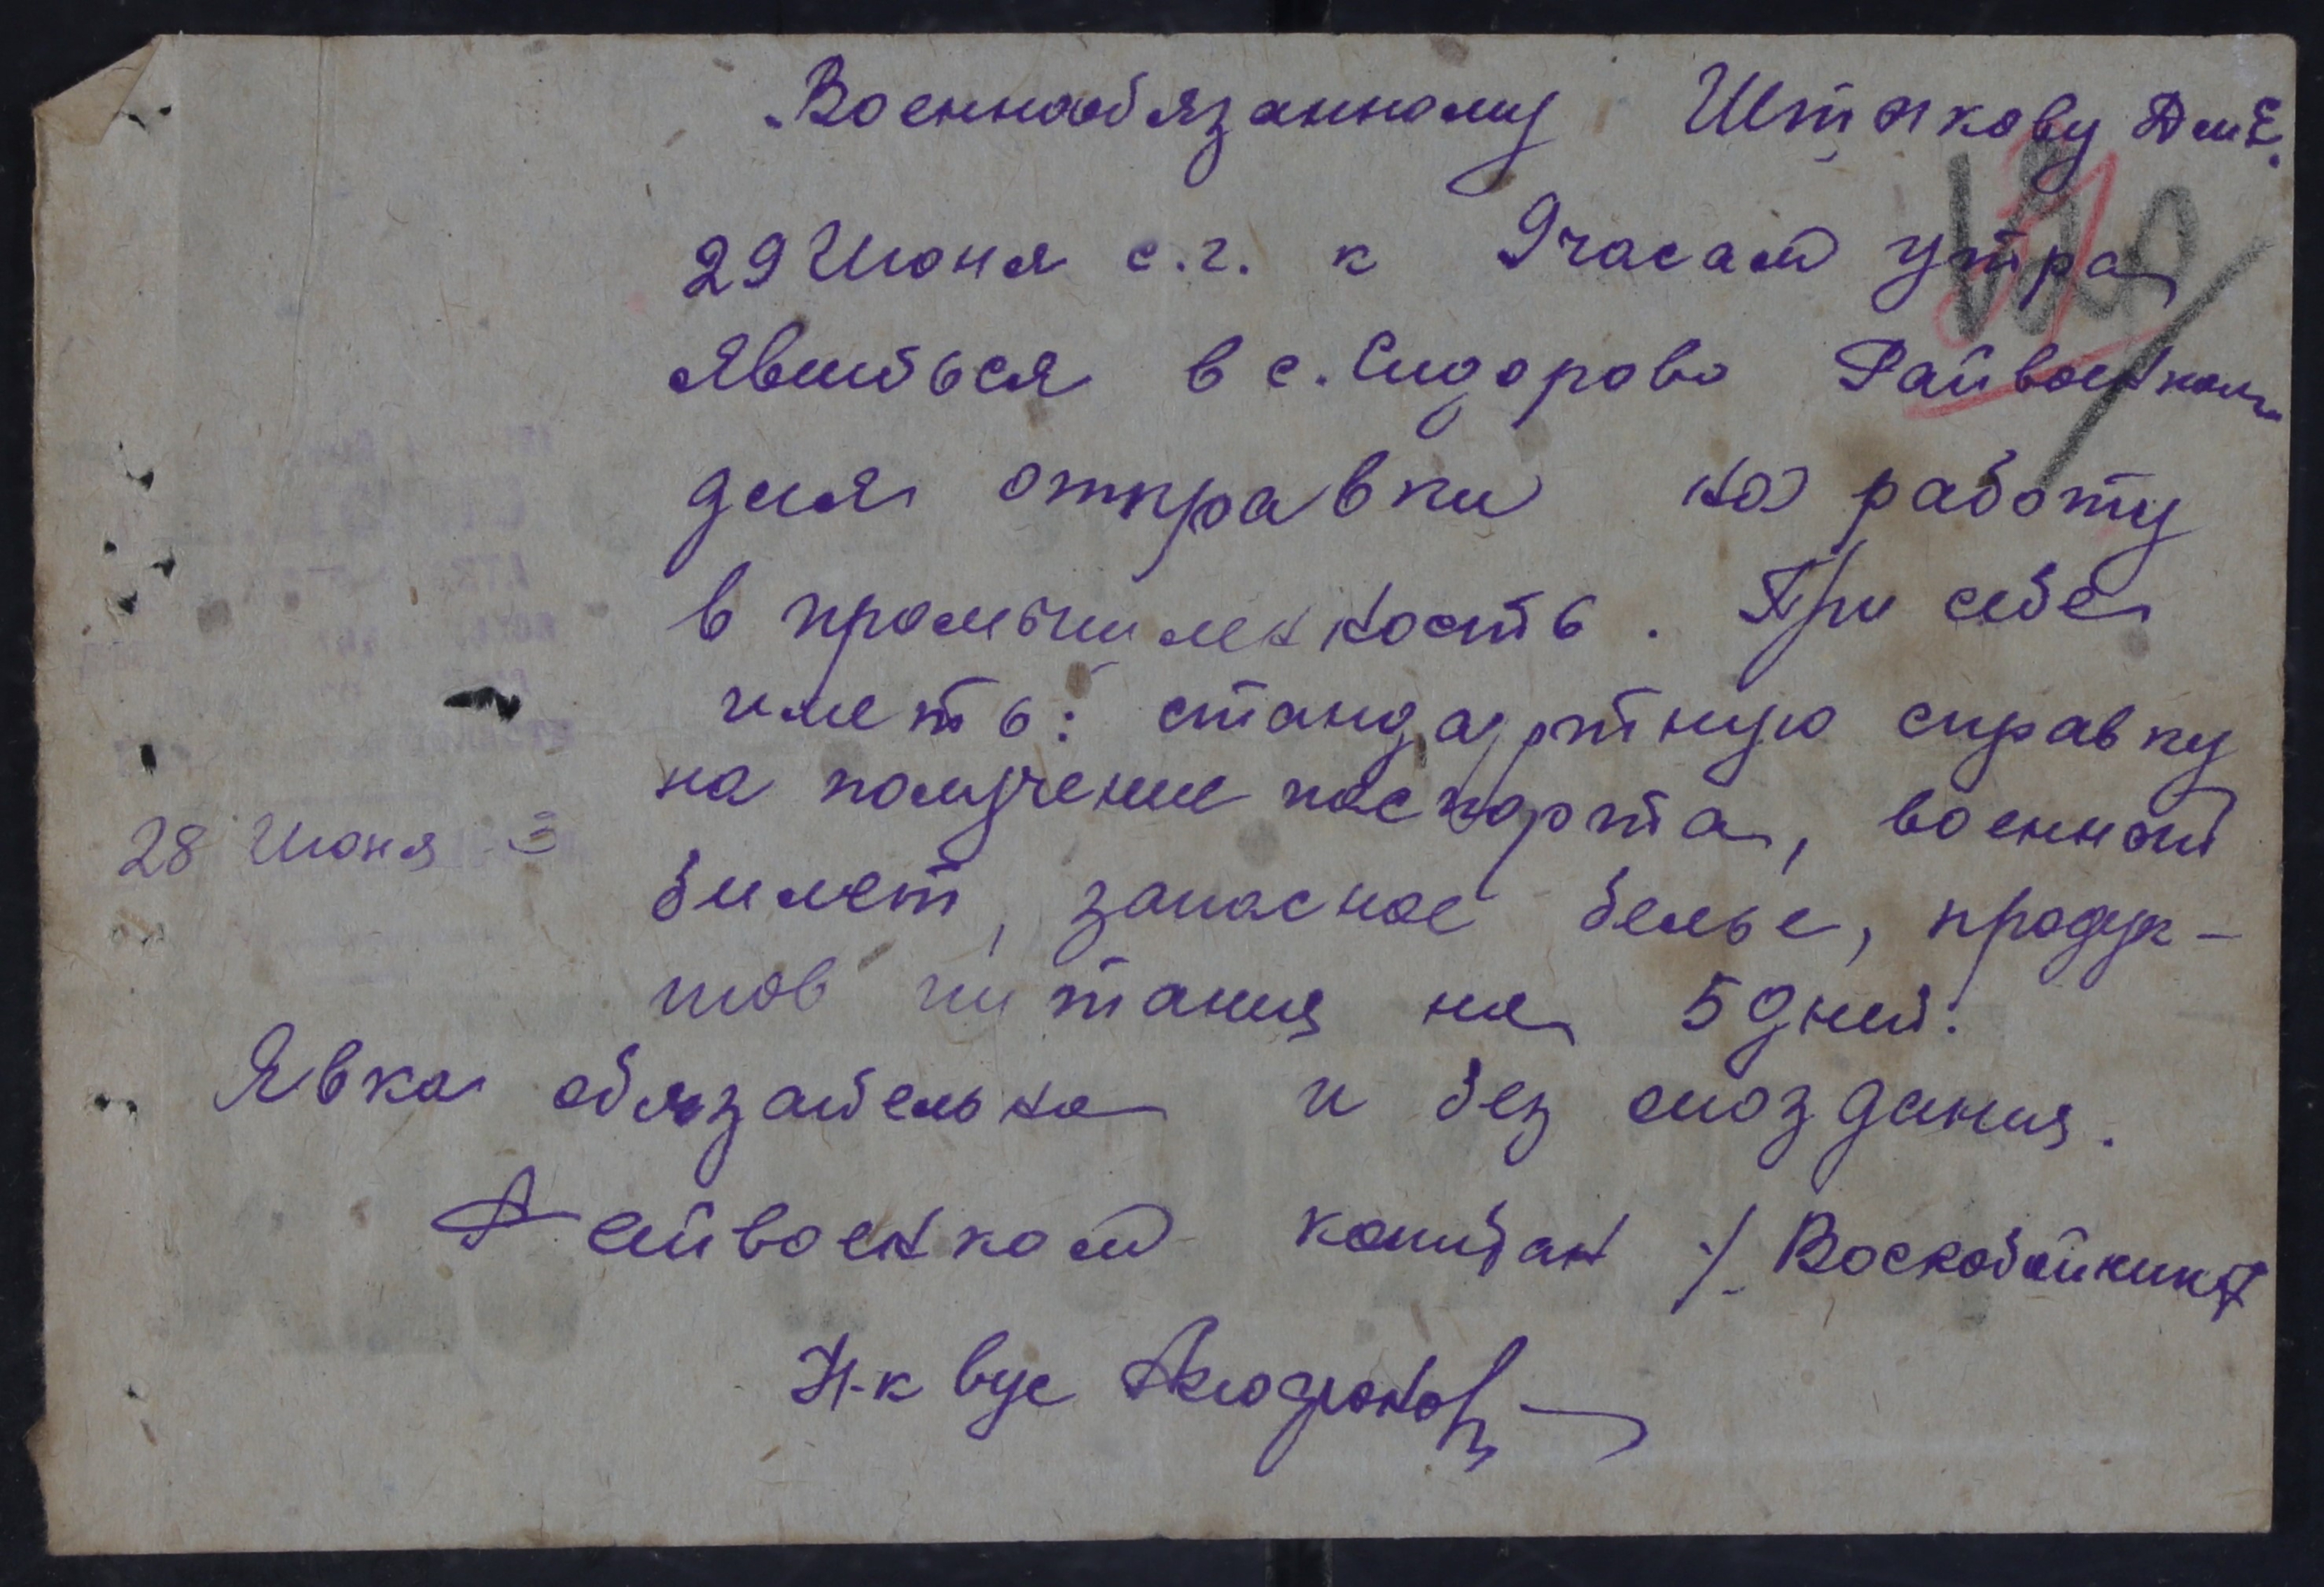 Военнообязанному Штыкову Дм. Е.
29 Июня с.г. к 9 часам утра
Явиться в с. Сидорово Райвоенком.
для отправки на работу
в промышленность. При себе
иметь: стандартную справку
на получение паспорта, военный
28 Июня
билет, запасное белье, продук-
тов питания на 5 дней.
Явка обязательна и без опоздания.
Райвоенком капитан /. Воскобойников
Н-к вус